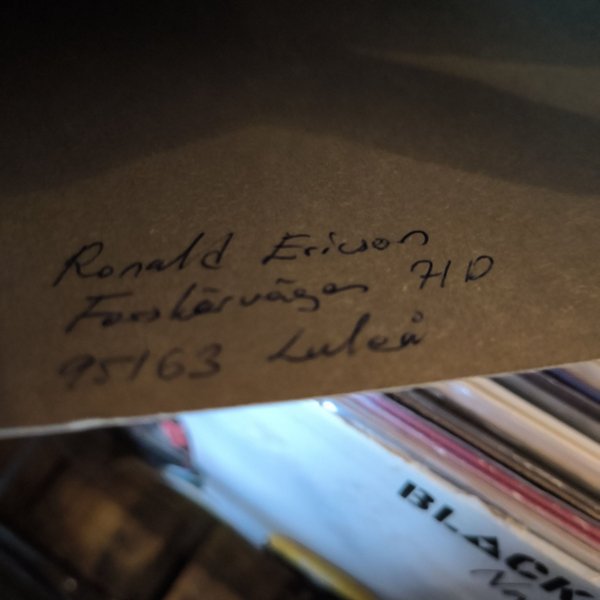 Ronald Ericson
Forskarvägen 71 D
95163 Luleå
BLACK